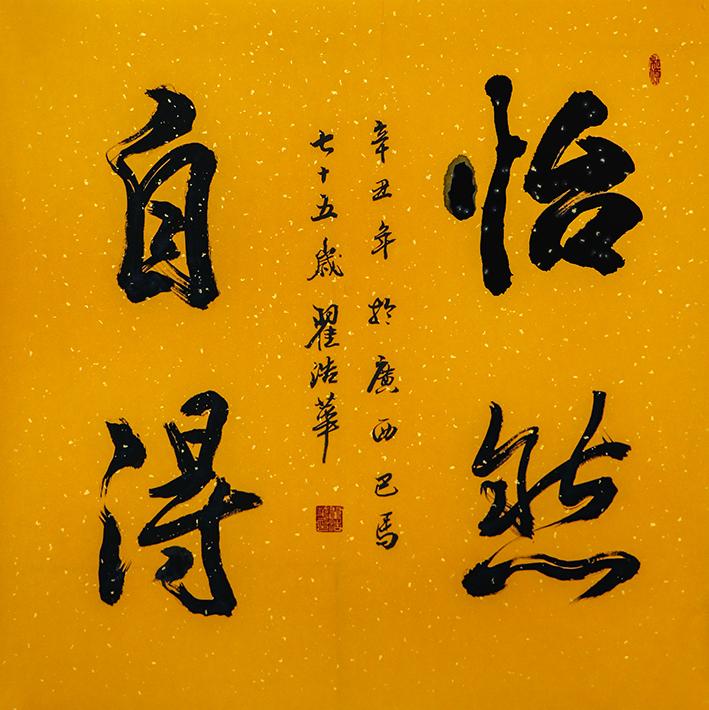 怡然
自得
辛丑年於廣西巴馬
七十五歲翟浩華